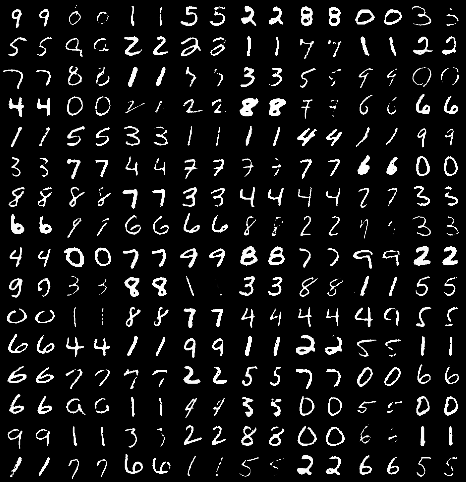 9 9 0 0 1 1 5 5 2 2 8 8 0 0 3 3
5 5 2 2 2 2 1 1 7 7 1 1 2 2
7 7 8 8 1 1 3 3 5 5 9 9 0 0
4 4 0 0 2 2 2 8 8 7 6 6 6 6
1 1 5 5 3 3 1 1 1 1 4 4 1 1 9 9
3 3 7 7 4 4 7 7 7 7 7 7 6 6 0 0
8 8 8 8 7 7 3 3 4 4 4 4 7 7 3 3
6 6 9 9 6 6 6 6 8 8 2 2 3 3
4 4 0 0 7 7 9 9 8 8 7 7 9 9 2 2
9 9 3 3 8 8 1 3 3 8 8 1 1 5 5
0 0 1 1 8 8 7 7 4 4 4 4 4 9 5 5
6 6 4 4 1 1 9 9 1 1 2 2 5 5 1 1
6 6 7 7 7 7 2 2 5 5 7 7 0 0 6 6
6 6 0 0 1 1 4 4 3 5 0 0 5 5 0 0
9 9 1 1 3 3 2 2 8 8 0 0 6 1 1
1 1 7 7 6 6 1 1 5 2 2 6 6 5 5